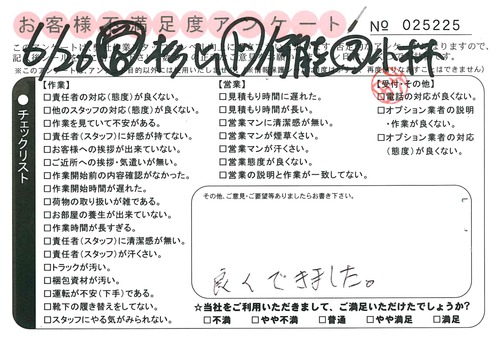 お客様不満足度アンケート
№ 025225
※このアンケートは、
チェックリスト
【作業】
□責任者の対応(態度)が良くない。
□他のスタッフの対応(態度)が良くない。
□作業を見ていて不安がある。
□責任者(スタッフ)に好感が持てない。
□お客様への挨拶が出来ていない。
□ご近所への挨拶・気遣いが無い。
□作業開始前の内容確認がなかった。
□作業開始時間が遅れた。
□荷物の取り扱いが雑である。
□お部屋の養生が出来ていない。
□作業時間が長すぎる。
□責任者(スタッフ)に清潔感が無い。
□責任者(スタッフ)が汗くさい。
□トラックが汚い。
□梱包資材が汚い。
□運転が不安(下手)である。
□靴下の履き替えをしてない。
□スタッフにやる気がみられない。
【営業】
□見積もり時間に遅れた。
□見積もり時間が長い。
□営業マンに清潔感が無い。
□営業マンが煙草くさい。
□営業マンが汗くさい。
□営業態度が良くない。
□営業の説明と作業が一致してない。
【受付・その他】
□電話の対応が良くない。
□オプション業者の説明
・作業が良くない。
□オプション業者の対応
(態度)が良くない。
その他、ご意見・ご要望等ありましたらお書き下さい。
良くできました。
☆当社をご利用いただきまして、ご満足いただけたでしょうか?
□不満 □やや不満 □普通 □やや満足 □満足